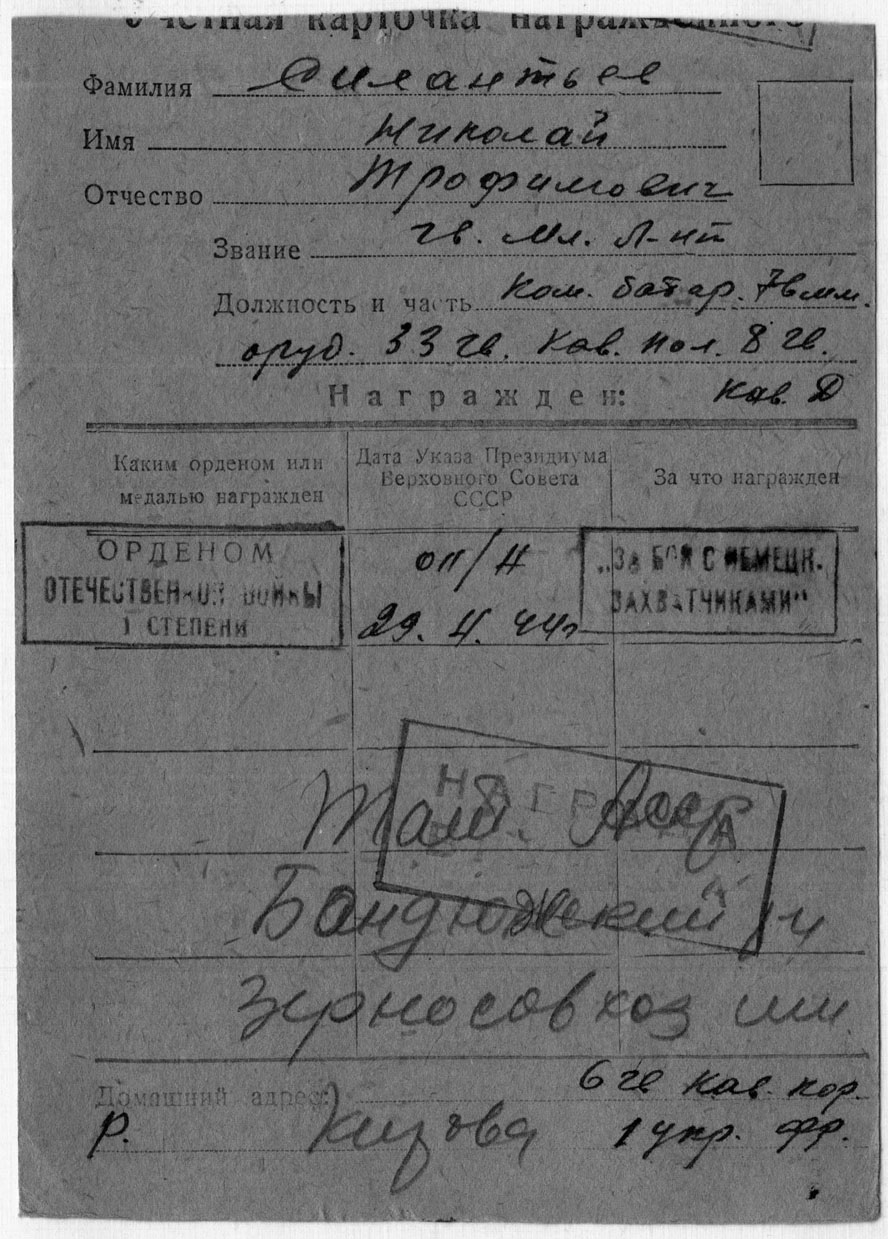 Учетная карточка награжденного
Фамилия Силантьев
Имя Николай
Отчество Трофимович
Звание гв. мл. л-нт
Должность и часть ком. батар. 76 мм.
оруд. 33 гв. кав. пол. 8 гв.
Награжден: кав. Д
Каким орденом или медалью награжден
Дата Указа Президиума Верховного Совета СССР
За что награжден
ОРДЕНОМ
ОТЕЧЕСТВЕННОЙ ВОЙНЫ
I СТЕПЕНИ
оп/н
29. 4. 44г
„ЗА БОИ С НЕМЕЦК.
ЗАХВАТЧИКАМИ“
НАГРАДА
Тат. Асср
Бондюжский р-н
Зерносовхоз им
6 гв кав. кор.
Домашний адрес:
р. Кирова 1 укр. фр.